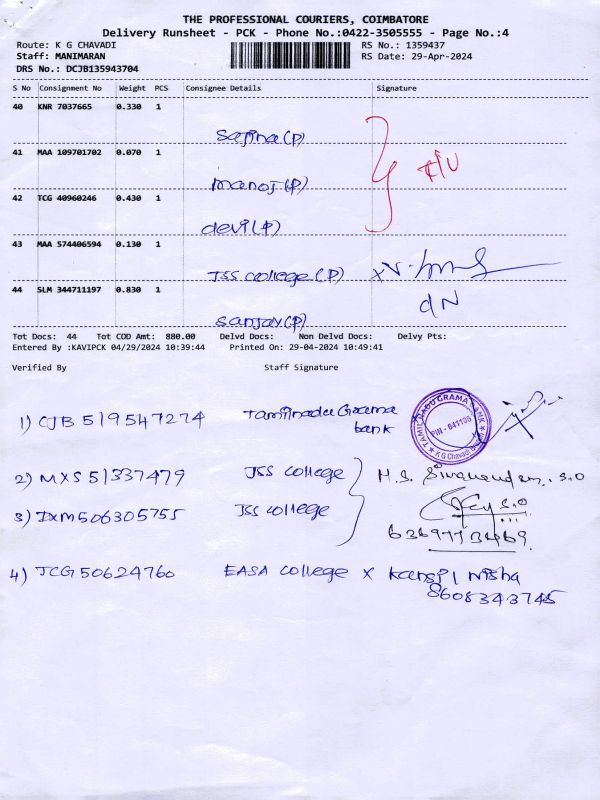 THE PROFESSIONAL COURIERS, COIMBATORE
Delivery Runsheet - PCK - Phone No.:0422-3505555 - Page No.:4
Route: K G CHAVADI RS No.: 1359437
Staff: MANIMARAN RS Date: 29-Apr-2024
DRS No.: DCJB135943704
S No Consignment No Weight PCS Consignee Details Signature
40 KNR 7037665 0.330 1
Sajina(P)
41 MAA 109701702 0.070 1
manoj(P)
42 TCG 40960246 0.430 1
devi(P)
43 MAA 574406594 0.130 1
JSS college(P)
44 SLM 344711197 0.830 1
dN
Sanjay(P)
Tot Docs: 44 Tot COD Amt: 880.00 Delvd Docs: Non Delvd Docs: Delvy Pts:
Entered By :KAVIPCK 04/29/2024 10:39:44 Printed On: 29-04-2024 10:49:41
Verified By Staff Signature
1) CJB 519547274 Tamilnadu Grama
bank
TAMIL NADU GRAMA BANK
PIN - 641105
K G Chavadi
2) MXS 51337479 JSS college H.S. S.O
3) IXM506305755 JSS college S.O
4) TCG50624760 EASA college x Nisha
8608343745